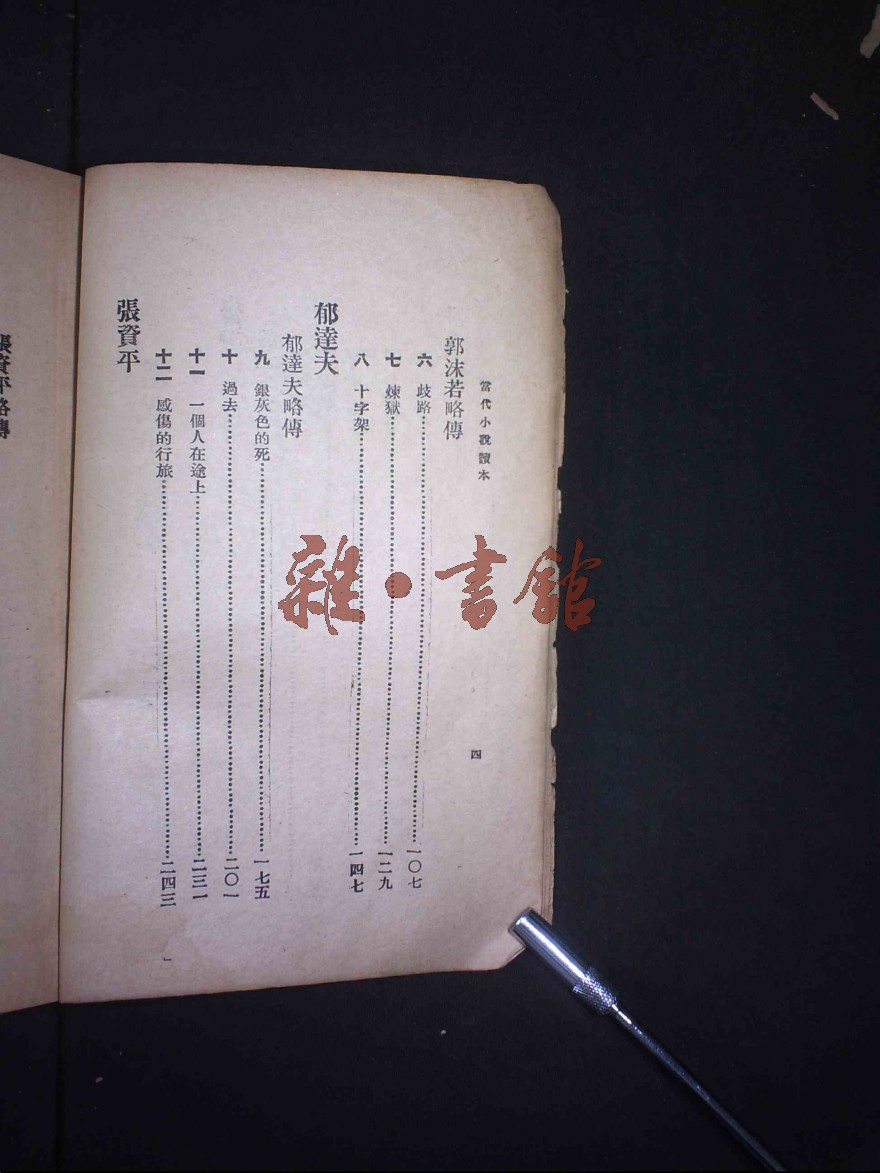 當代小說讀本
四
郭沫若略傳
六 歧路……一〇七
七 煉獄……一二九
八 十字架……一四七
郁達夫
郁達夫略傳
九 銀灰色的死……一七五
十 過去……二〇一
十一 一個人在途上……二三一
十二 感傷的行旅……二四三
張資平
張資平略傳
雜·書館